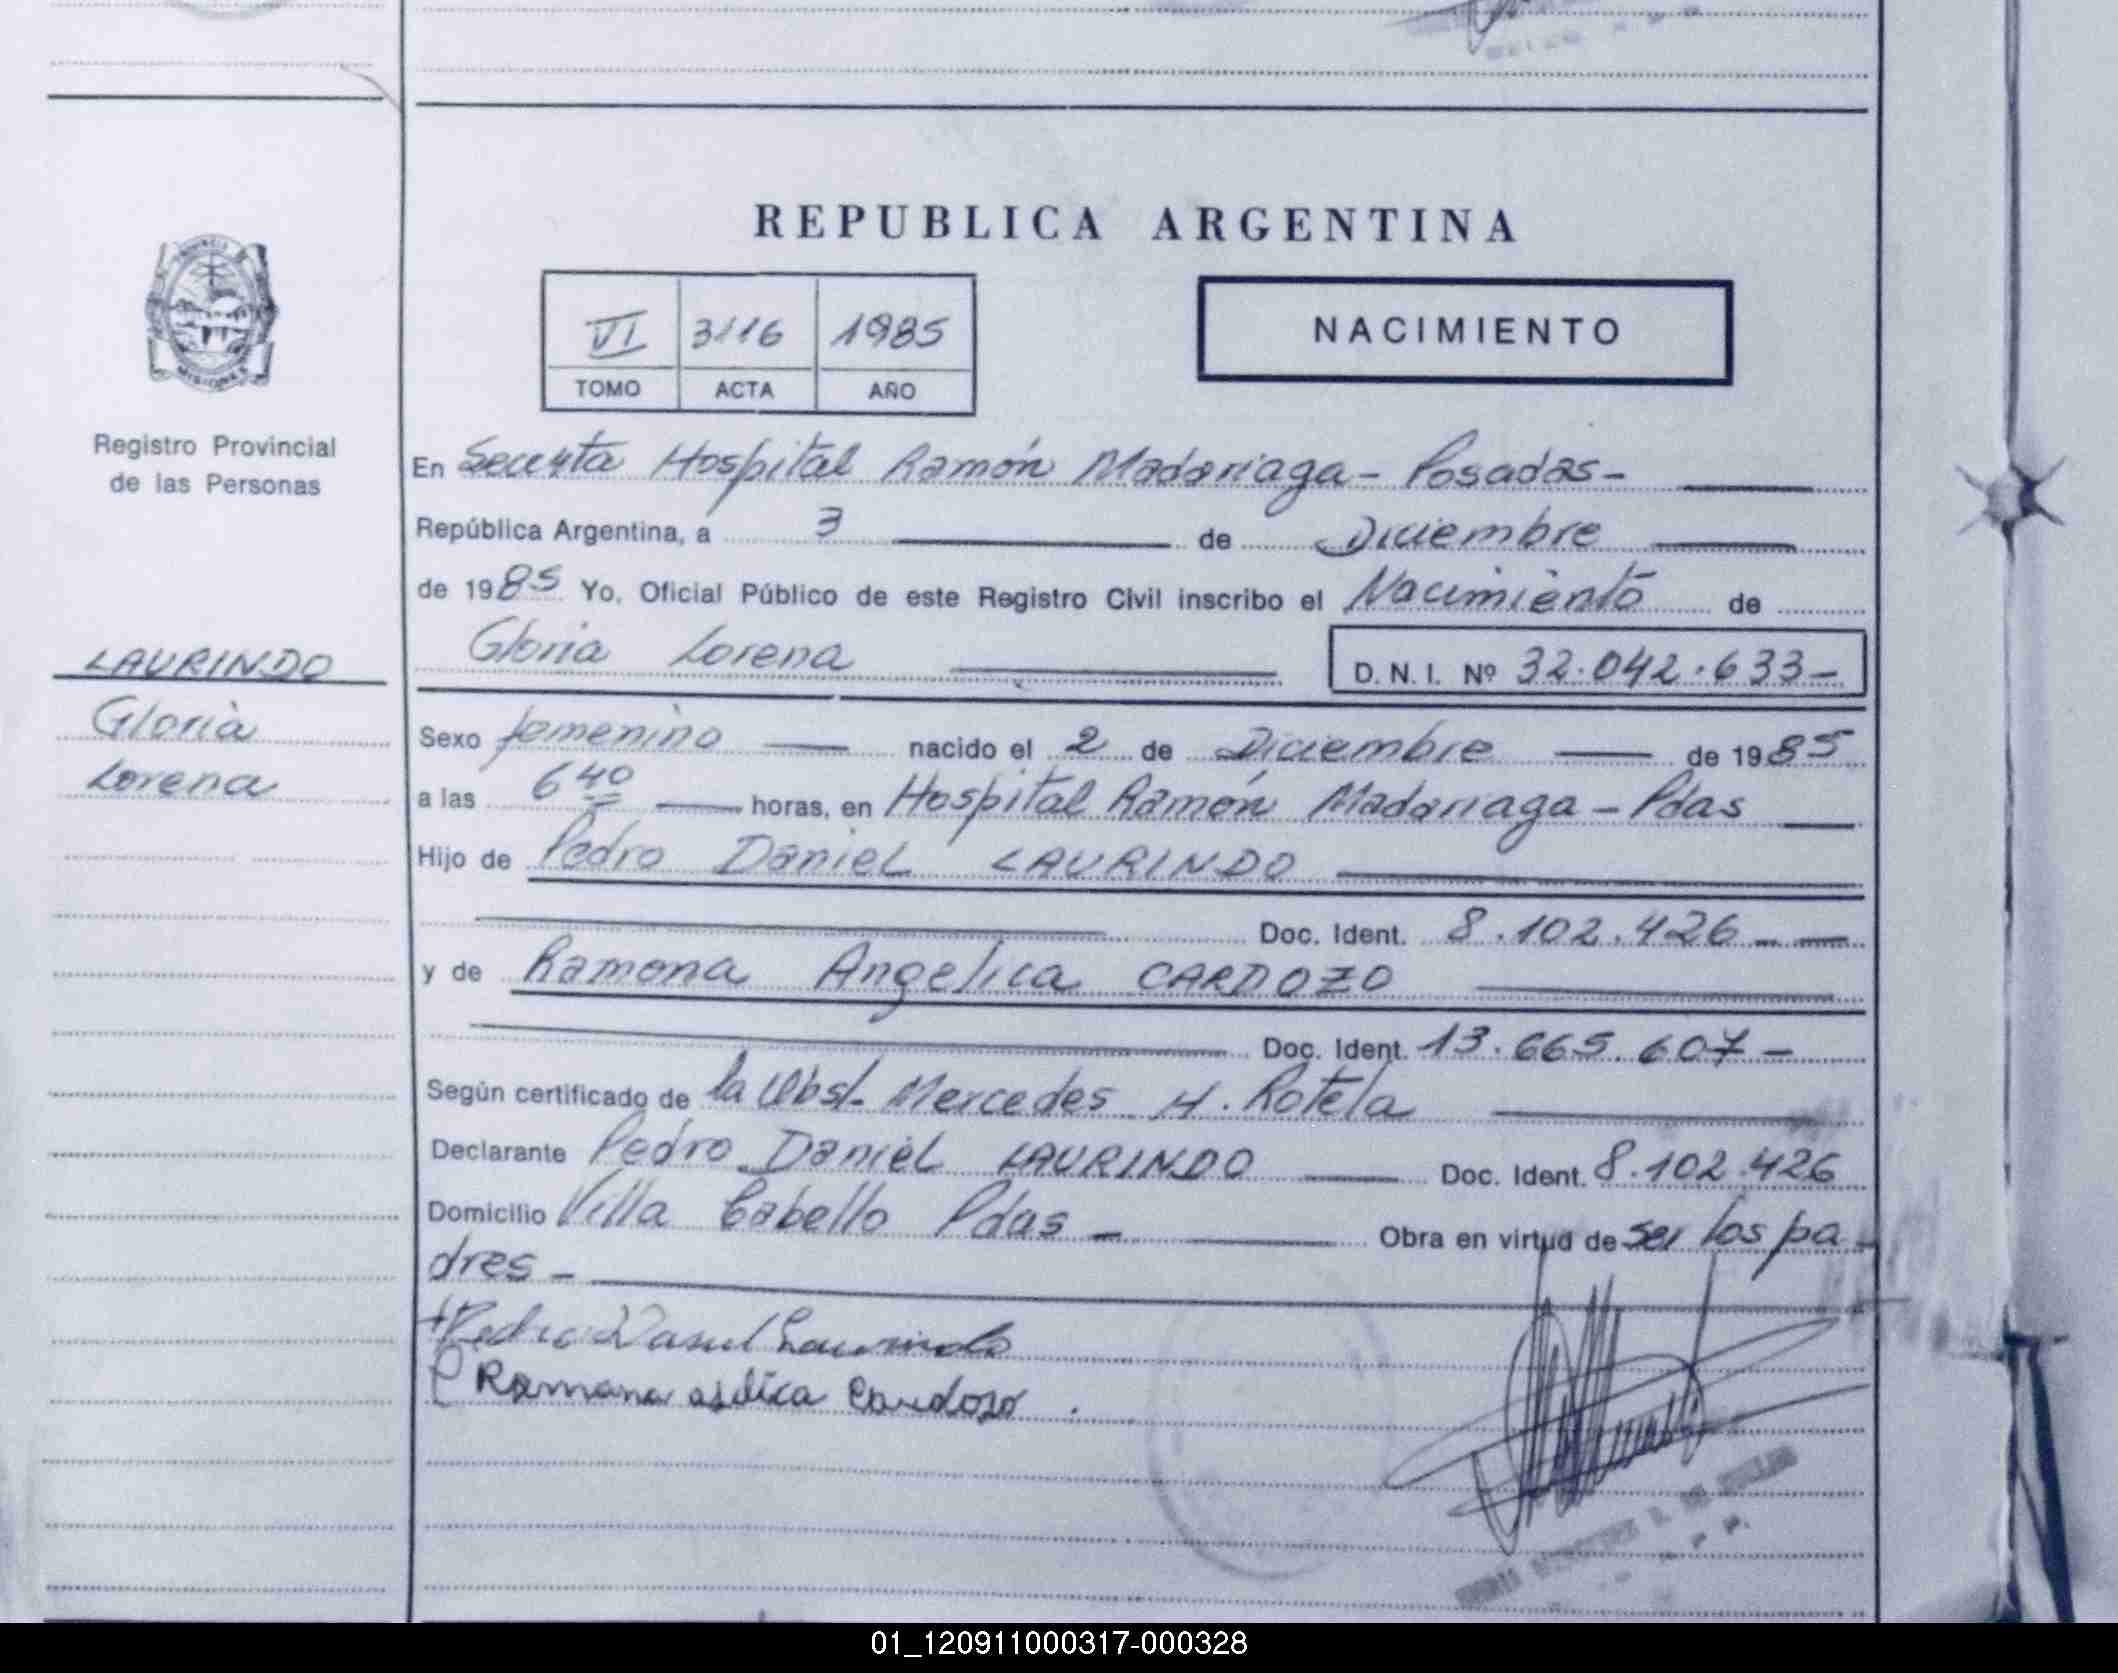 REPUBLICA ARGENTINA
VI 3116 1985
TOMO ACTA AÑO
NACIMIENTO
Registro Provincial
de las Personas
LAURINDO
Gloria
Lorena
En Hospital Ramón Madariaga - Posadas -
República Argentina, a 3 de Diciembre
de 1985 Yo, Oficial Público de este Registro Civil inscribo el Nacimiento de
Gloria Lorena D. N. I. Nº 32.042.633-
Sexo femenino nacido el 2 de Diciembre de 1985
a las 6 40 horas, en Hospital Ramón Madariaga - Pdas
Hijo de Pedro Daniel LAURINDO
Doc. Ident. 8.102.426
y de Ramona Angelica CARDOZO
Doc. Ident. 13.665.607-
Según certificado de la Obst. Mercedes H. Rotela
Declarante Pedro Daniel LAURINDO Doc. Ident. 8.102.426
Domicilio Villa Cabello Pdas - Obra en virtud de ser los pa-
dres -
Pedro Daniel Laurindo
Ramona Cardozo
01_120911000317-000328